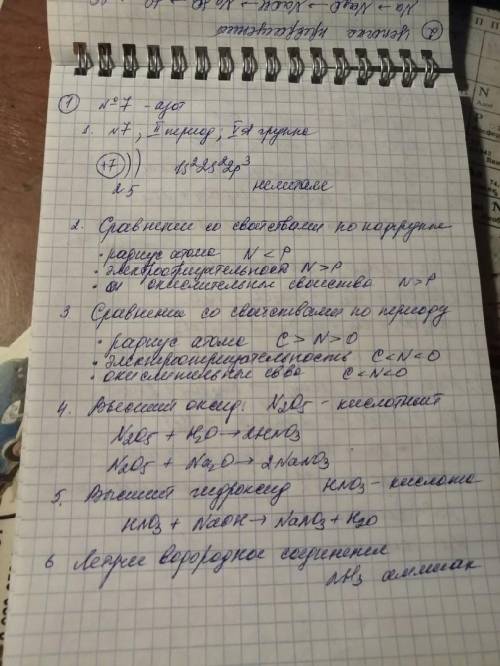 ② Цепочка превращений
Na → Na₂O → NaOH →
① №7 - азот
1. N7, II период, V A группа
+7 ) ) 1s²2s²2p³
2 5 неметалл
2. Сравнении со свойствами по подгруппе
• радиус атома N < P
• электроотрицательность N > P
• окислительные свойства N > P
3. Сравнение со свойствами по периоду
• радиус атома C > N > O
• электроотрицательность C < N < O
• окислительные св-ва C < N < O
4. Высший оксид: N₂O₅ - кислотный
N₂O₅ + H₂O → 2HNO₃
N₂O₅ + Na₂O → 2NaNO₃
5. Высший гидроксид HNO₃ - кислота
HNO₃ + NaOH → NaNO₃ + H₂O
6 Летучее водородное соединения
NH₃ аммиак